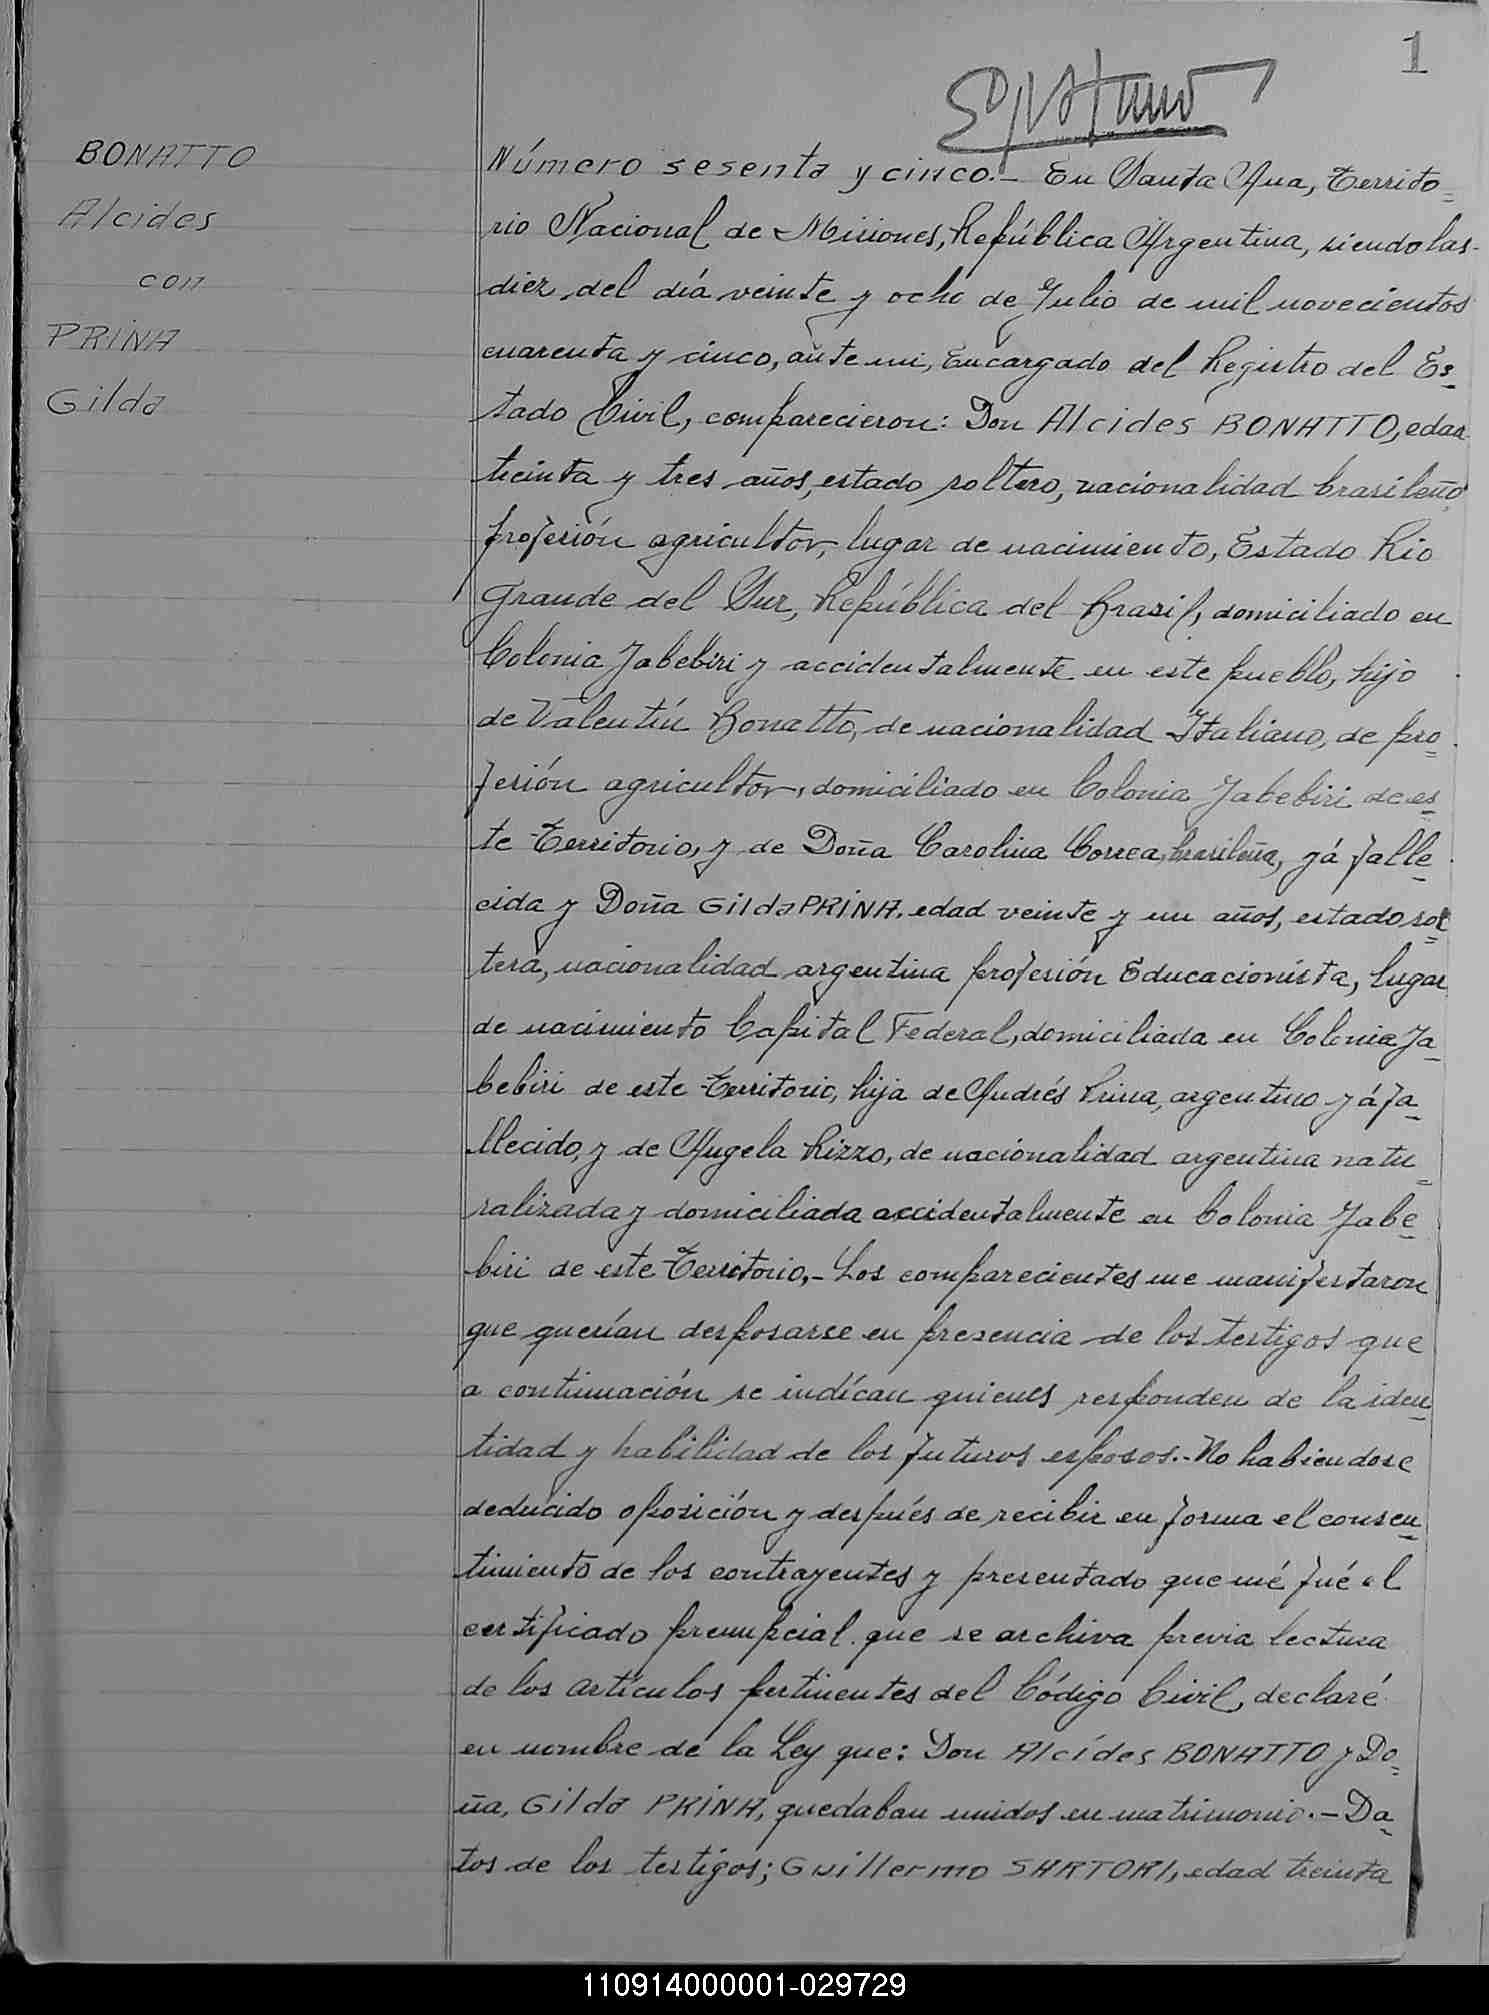 1
BONATTO
Alcides
con
PRINA
Gilda
Número sesenta y cinco.- En Santa Ana, Territo=
rio Nacional de Misiones, República Argentina, siendo las-
diez del día veinte y ocho de Julio de mil novecientos
cuarenta y cinco, ante mi, Encargado del Registro del Es=
tado Civil, comparecieron: Don Alcides BONATTO, edad
treinta y tres años, estado soltero, nacionalidad brasileño,
profesión agricultor, lugar de nacimiento, Estado Rio
Grande del Sur, República del Brasil, domiciliado en
Colonia Jabebiri y accidentalmente en este pueblo, hijo
de Valentín Bonatto, de nacionalidad Italiano, de pro=
fesión agricultor, domiciliado en Colonia Jabebiri de es=
te Territorio, y de Doña Carolina Correa, brasileña, yá falle=
cida y Doña Gilda PRINA, edad veinte y un años, estado sol=
tera, nacionalidad argentina profesión Educacionista, lugar
de nacimiento Capital Federal, domiciliada en Colonia Ja=
bebiri de este Territorio, hija de Andrés Prina, argentino yá fa=
llecido, y de Angela Rizzo, de nacionalidad argentina natu=
ralizada y domiciliada accidentalmente en Colonia Jabe=
biri de este Territorio,- Los comparecientes me manifestaron
que querían desposarse en presencia de los testigos que
a continuación se indícan quienes responden de la iden=
tidad y habilidad de los futuros esposos.- No habiendose
deducido oposición y después de recibir en forma el consen=
timiento de los contrayentes y presentado que mé fué el
certificado prenupcial que se archiva previa lectura
de los artículos pertinentes del Código Civil, declaré
en nombre de la Ley que: Don Alcídes BONATTO y Do=
ña, Gilda PRINA, quedaban unidos en matrimonio.- Da=
tos de los testigos; Guillermo SARTORI, edad treinta
110914000001-029729